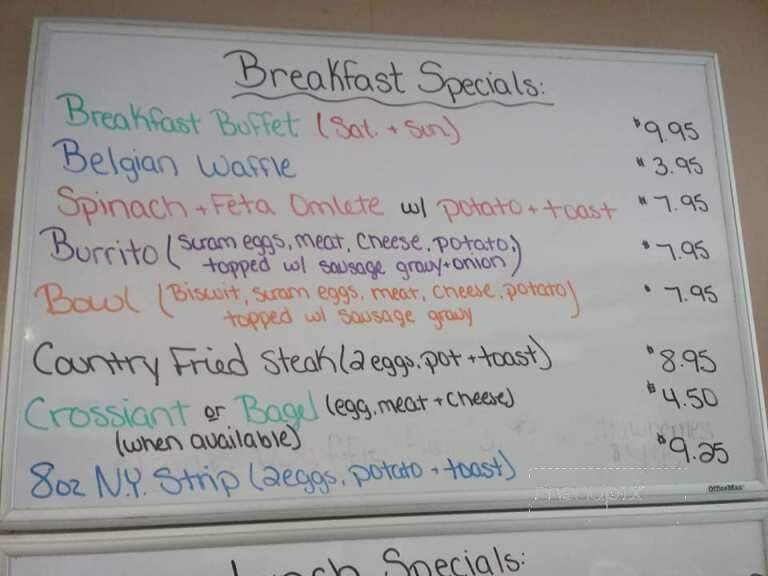 Breakfast Specials:
Breakfast Buffet (Sat. + Sun) $9.95
Belgian Waffle $3.95
Spinach + Feta Omlete w/ potato + toast $7.95
Burrito (Scram eggs, meat, cheese, potato, $7.95
topped w/ sausage gravy + onion)
Bowl (Biscuit, scram eggs, meat, cheese, potato) $7.95
topped w/ sausage gravy
Country Fried Steak (2 eggs, pot + toast) $8.95
Crossiant or Bagel (egg, meat + cheese) $4.50
(when available)
8oz N.Y. Strip (2 eggs, potato + toast) $9.25
menupix
OfficeMax
Lunch Specials: